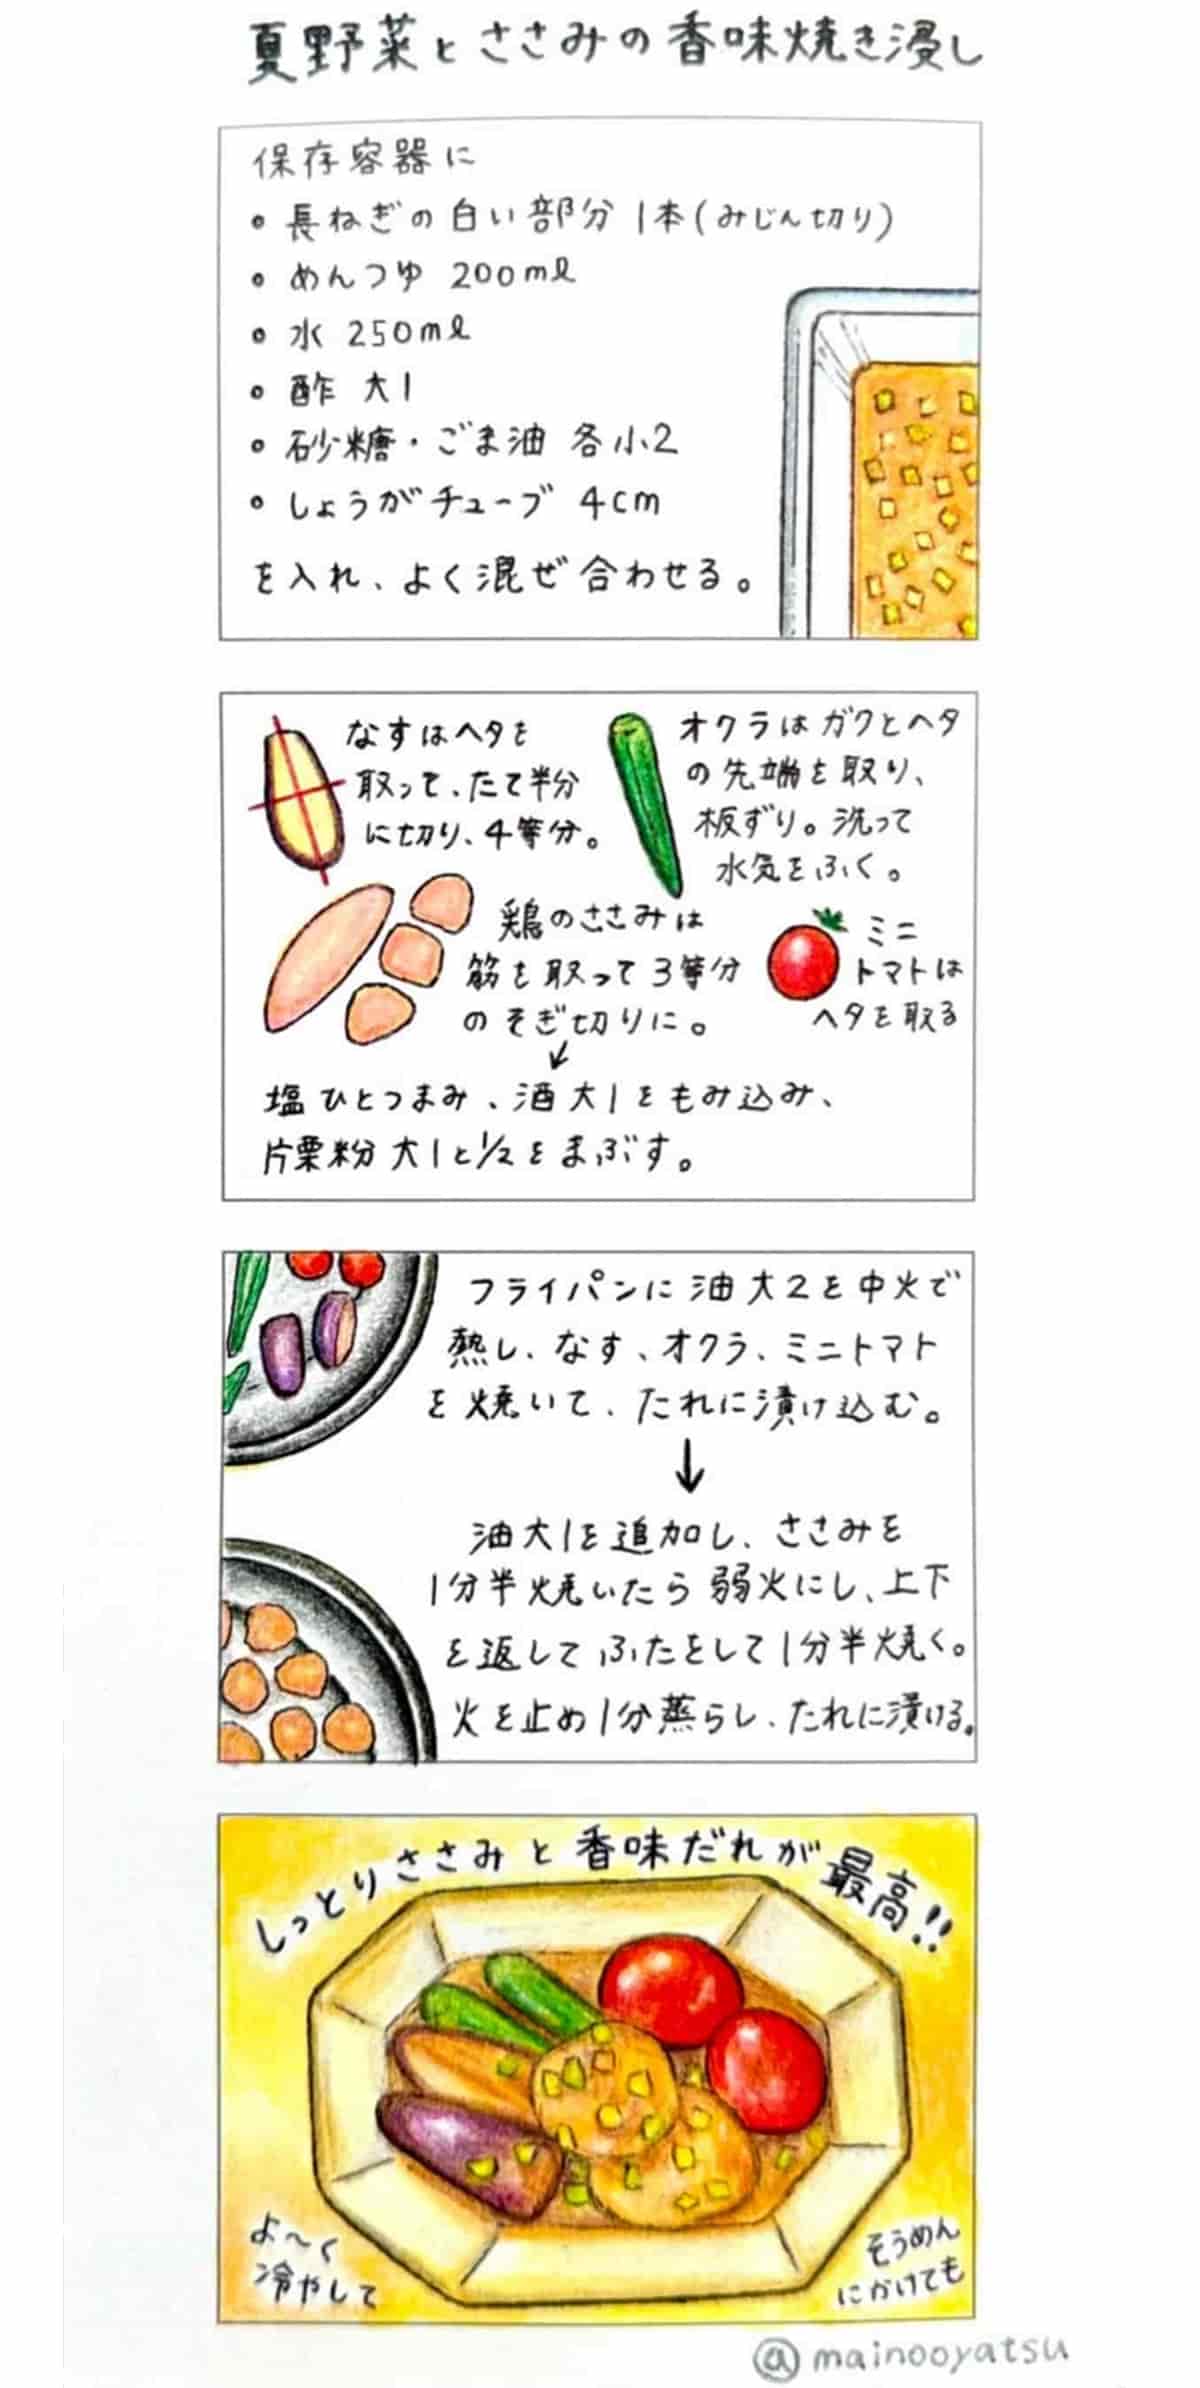 夏野菜とささみの香味焼き浸し
保存容器に
• 長ねぎの白い部分 1本(みじん切り)
• めんつゆ 200ml
• 水 250ml
• 酢 大1
• 砂糖・ごま油 各小2
• しょうがチューブ 4cm
を入れ、よく混ぜ合わせる。
なすはヘタを
取って、たて半分
に切り、4等分。
オクラはガクとヘタ
の先端を取り、
板ずり。洗って
水気をふく。
鶏のささみは
筋を取って3等分
のそぎ切りに。
↙
塩ひとつまみ、酒大1をもみ込み、
片栗粉大1と1/2をまぶす。
ミニ
トマトは
ヘタを取る
フライパンに油大2を中火で
熱し、なす、オクラ、ミニトマト
を焼いて、たれに漬け込む。
↓
油大1を追加し、ささみを
1分半焼いたら弱火にし、上下
を返してふたをして1分半焼く。
火を止め1分蒸らし、たれに漬ける。
しっとりささみと香味だれが最高!!
よ〜く
冷やして
そうめん
にかけても
@mainooyatsu